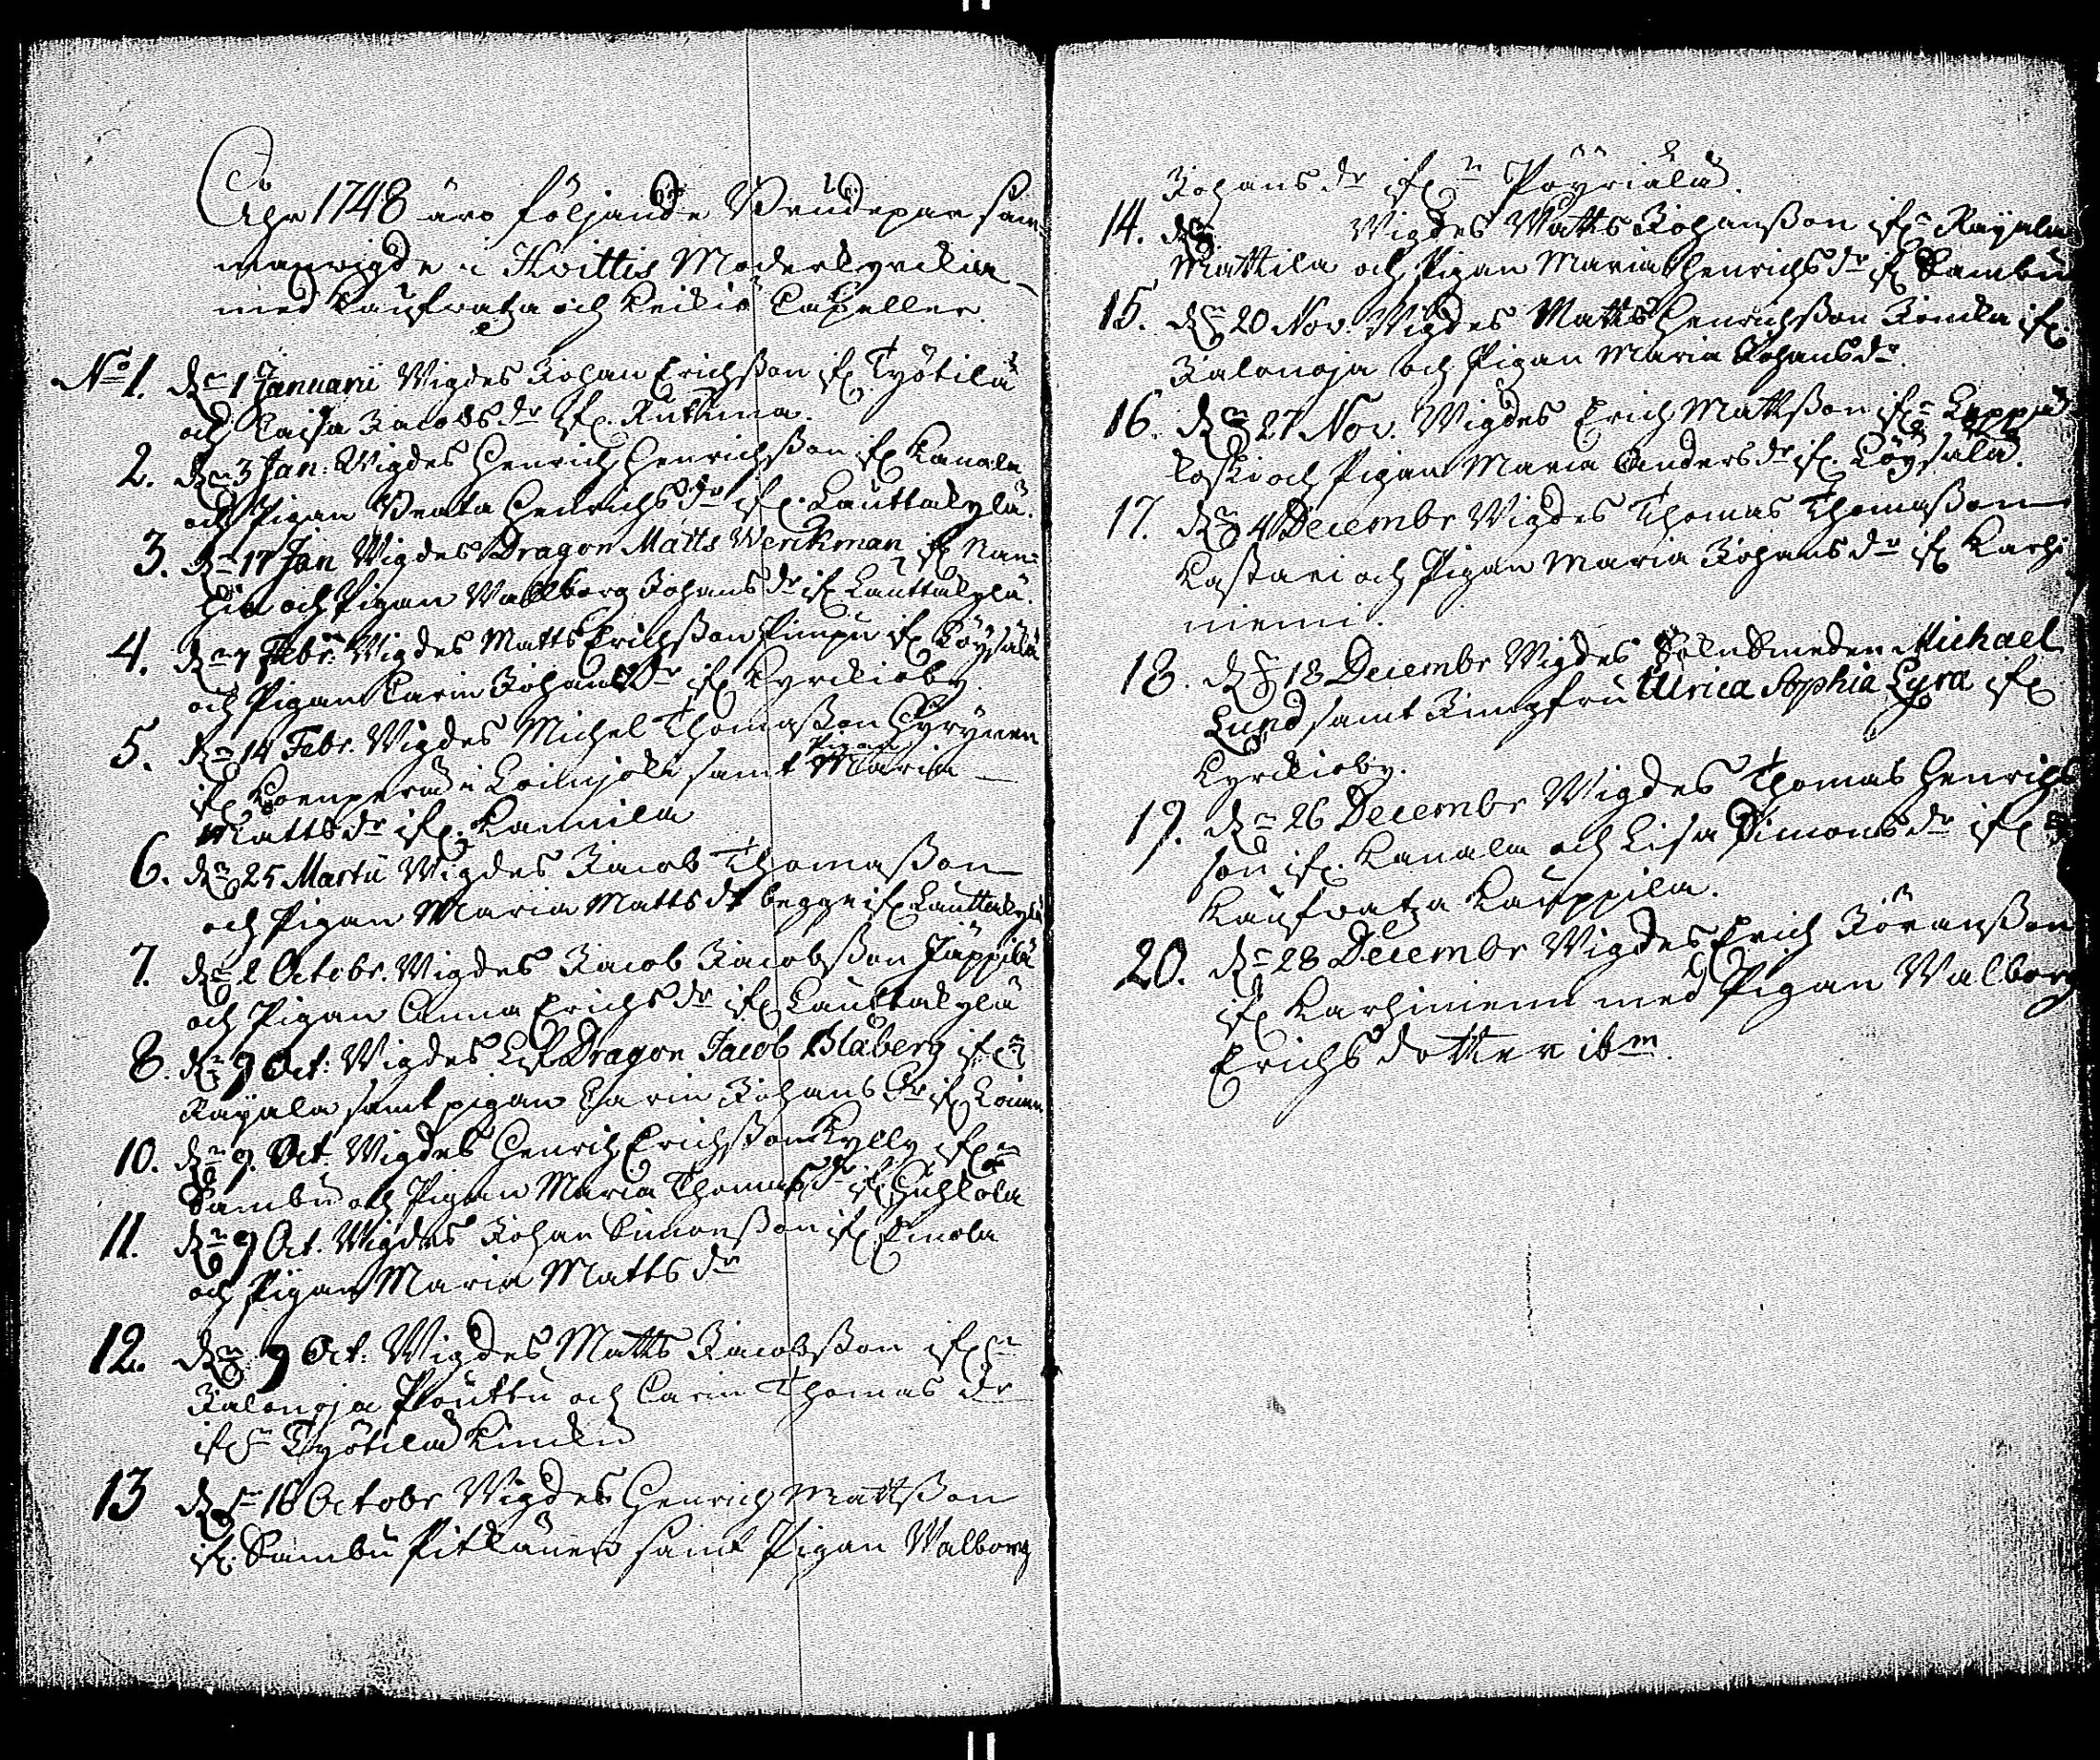 Åhr 1748 äro följande Brudepar sam-
manvigde i Hvittis Moderkyrckia
med Kaufvatza och Keikiö Capeller.
No 1. Dn 1 Januarii Vigdes Johan Erichsson ifr. Työtilä
och Caisa Jacobs dr ifr. Ruttima.
2. Dn 3 Jan: Vigdes Henrich Henrichsson ifr Kanala
och Pigan Beata Henrichs dr ifr. Lauttakylä.
3. Dn 17 Jan Vigdes Dragon Matts Werckman ifr Nan-
hia och Pigan Walborg Johans dr ifr Lauttakylä.
4. Dn 7 Febr: Vigdes Matts Erichsson Pimpu ifr Löysälä
och Pigan Carin Johans dr ifr Kyrckioby
5. Dn 14 Febr. Vigdes Michel Thomasson Hyrynen
ifr Koenperä i Loimjoki samt Pigan Maria
Matts dr ifr. Kannila
6. Dn 25 Martii Vigdes Jacob Thomasson
och Pigan Maria Matts dr begge ifr Lauttakylä
7. Dn 2 Octobr. Vigdes Jacob Jacobsson Jäppilä
och Pigan Anna Erichs dr ifr Lauttakylä
8. Dn 9 Oct: Vigdes Lif Dragon Jacob Blåberg ifrn
Rayala samt pigan Carin Johans dr ifr Loima
10. Dn 9. Oct. Vigdes Henrich Erichsson Kylly ifrn
Sambu och Pigan Maria Thomas dr ifr Huhkola
11. Dn 9 Oct. Vigdes Johan Simonsson ifr
och Pigan Maria Matts dr
12. Dn 9 Oct: Vigdes Matts Jacobsson ifrn
Jalonoja Pouttu och Carin Thomas dr
ifrn Työtilä
13 Dn 18 Octobr Vigdes Henrich Mattsson
ifr. Sambu Pitkänen samt Pigan Walborg
Johans dr ifrn Pöyriälä.
14. Dn Vigdes Matts Johansson ifrn Rayala
Mattila och Pigan Maria Henrichs dr ifr Sambu
15. Dn 20 Nov. Vigdes Matts Henrichsson ifr.
Jalonoja och Pigan Maria Johans dr
16. Dn 27 Nov. Vigdes Erich Mattsson ifrn Leppä
koski och Pigan Maria Anders dr ifr. Löysälä.
17. Dn 4 Decembr Vigdes Thomas Thomasson
Kastari och Pigan Maria Johans dr ifr Karhi
niemi.
18. Dn 18 Decembr Vigdes Michael
Lund samt Jungfru Ulrica Sophia Lyra ifr
Kyrckioby.
19. Dn 26 Decembr Vigdes Thomas Henrichs
son ifr. Kanala och Lisa Simons dr ifr
Kaufvatza Kauppila.
20. Dn 28 Decembr Vigdes Erich Göransson
ifr Karhiniemi med Pigan Walborg
Erichs dotter ibm.